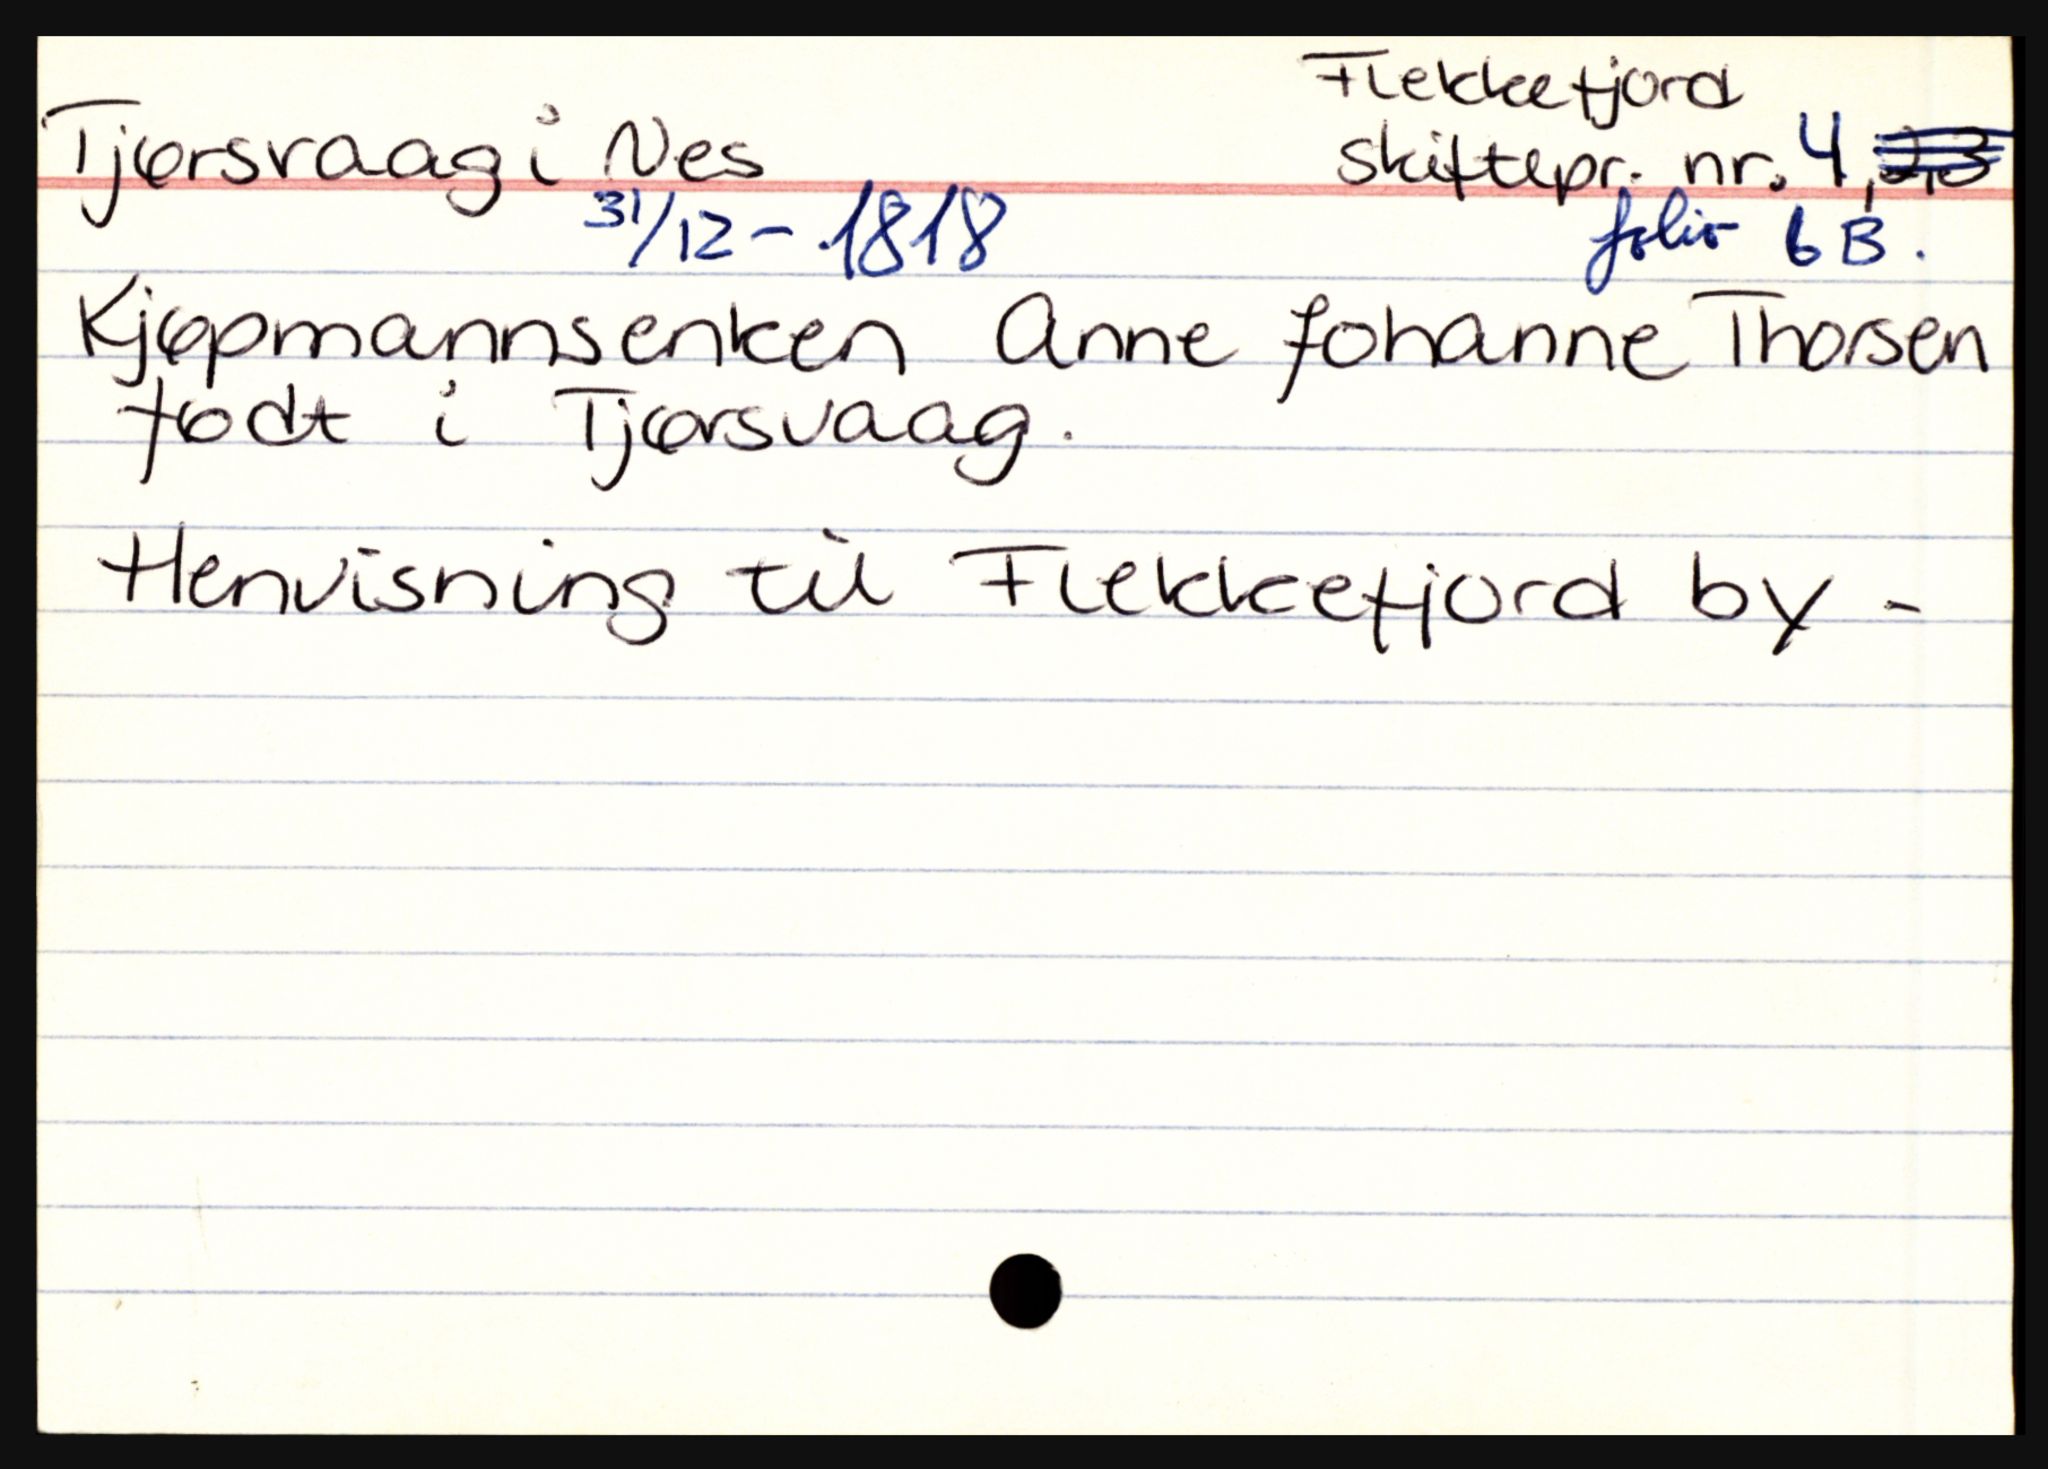 Flekkefjord
Tjørsvaag i Nes skiftepr. nr. 4,
31/12 - 1818 folio 6 B.
Kjøpmannsenken Anne Johanne Thorsen
født i Tjørsvaag.
Henvisning til Flekkefjord by -